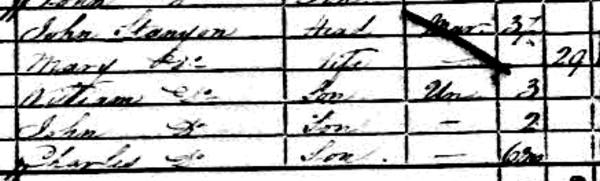 John Stanyon Head Mar. 37
Mary Do Wife — 29
William Do Son Un 3
John Do Son — 2
Charles Do Son. — 6m